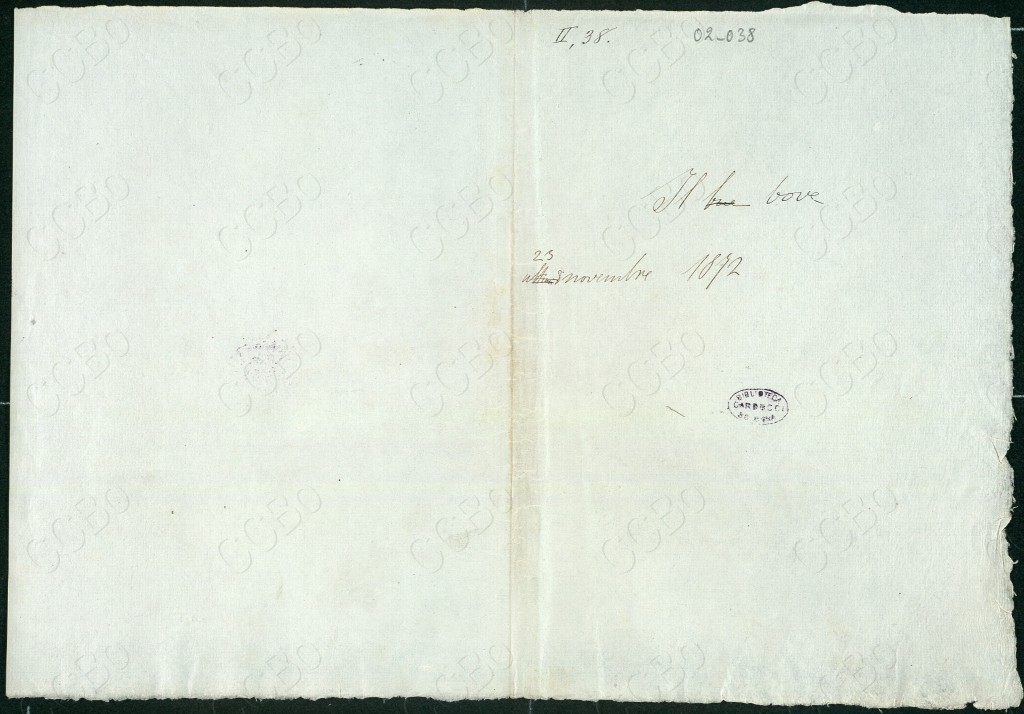 II, 38.
02-038
Il bue bove
23
novembre 1872
BIBLIOTECA
CARDUCCI
BOLOGNA
CCBo